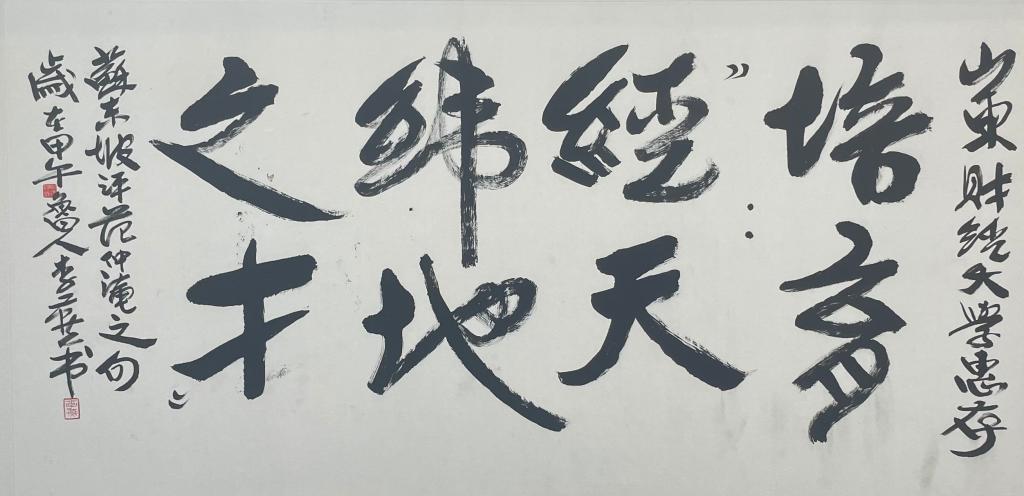 山東財經大學惠存
培育：
“經天
緯地
之才”
蘇东坡评范仲淹之句
歲在甲午魯人李燕书